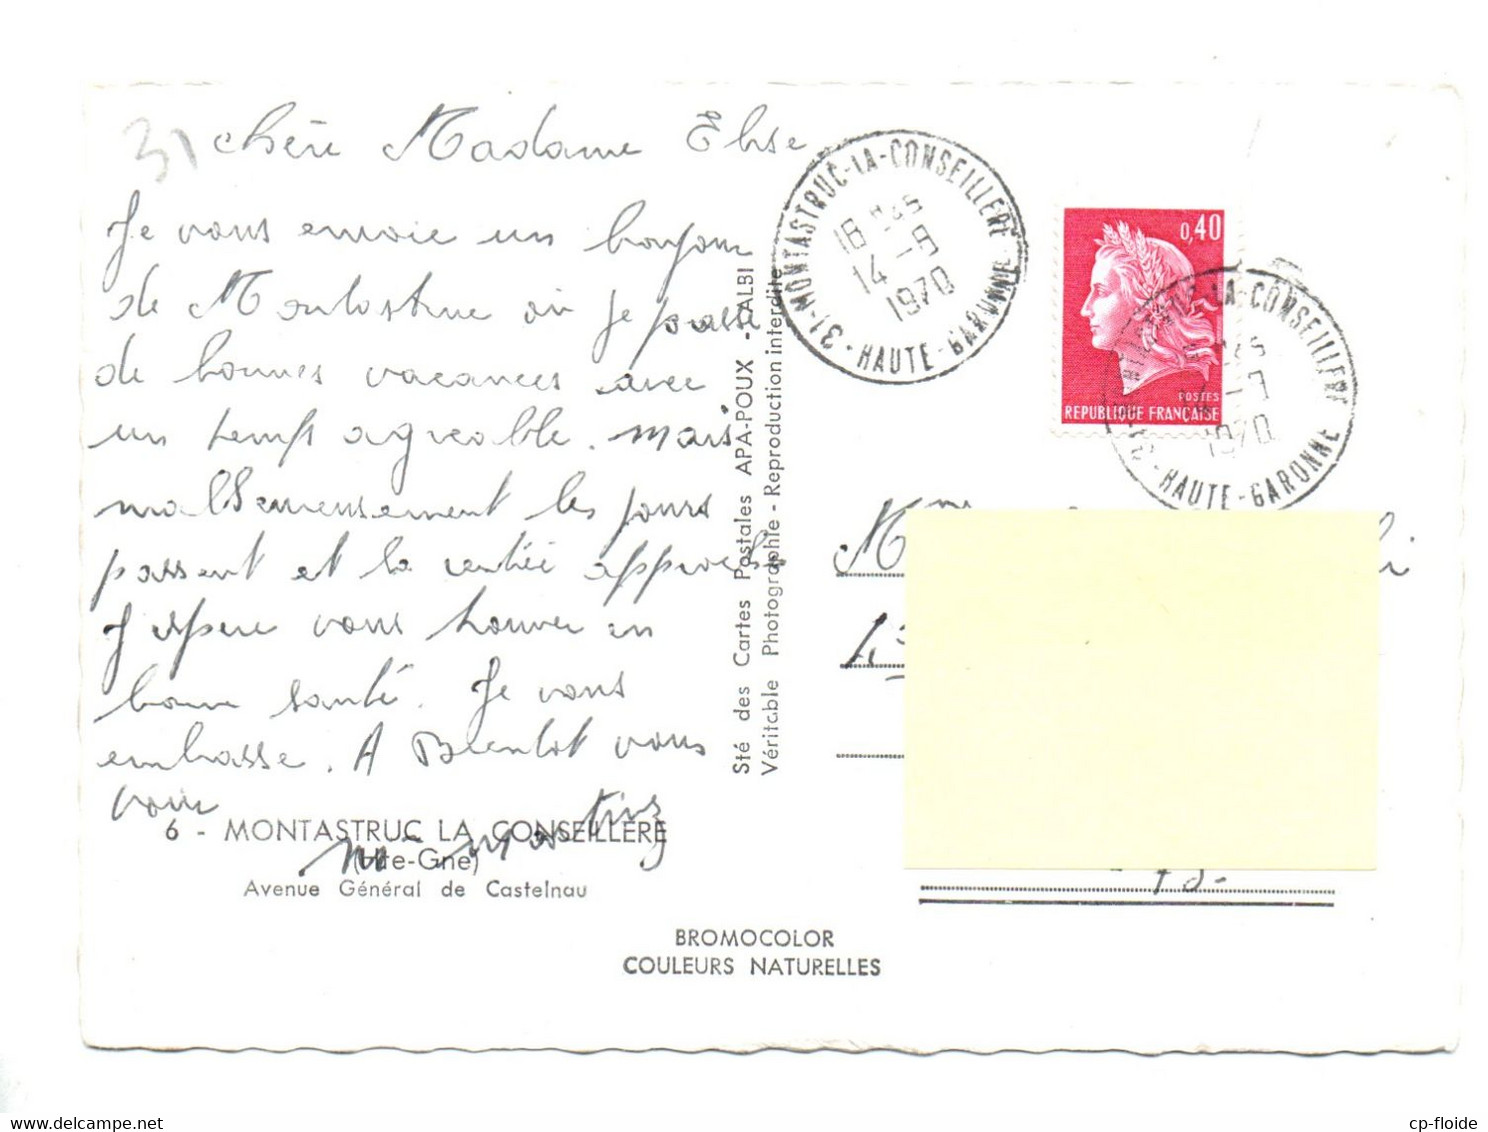 31
chère Madame Elise
Je vous envoie un bonjour
de Montastruc où je passe
de bonnes vacances avec
un temps agréable. mais
malheureusement les jours
passent et la rentrée approche
J'espère vous trouver en
bonne santé. Je vous
embrasse. A Bientot vous
voir
6 - MONTASTRUC LA CONSEILLERE
(Hte-Gne)
Avenue Général de Castelnau
Martinez
BROMOCOLOR
COULEURS NATURELLES
Sté des Cartes Postales APA-POUX - ALBI
Véritable Photographie - Reproduction interdite
31-MONTASTRUC-LA-CONSEILLERE
18 H45
14 -9
1970
HAUTE-GARONNE
0,40
POSTES
REPUBLIQUE FRANÇAISE
LA-CONSEILLERE
1970
HAUTE-GARONNE
Mme
www.delcampe.net
cp-floide